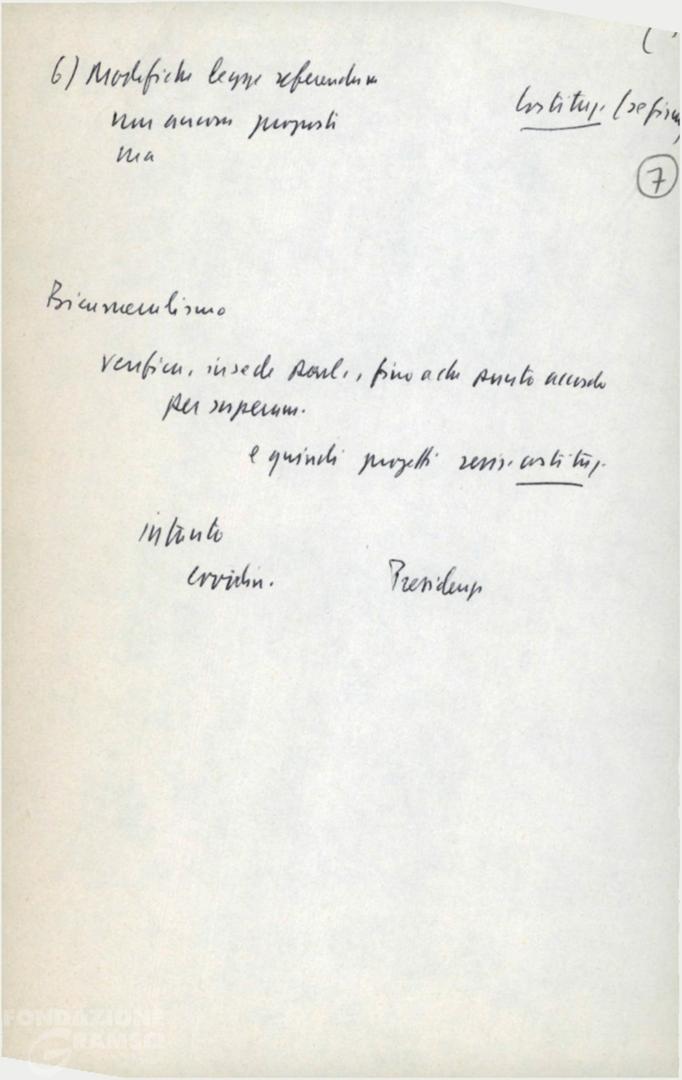 6) Modifiche legge referendum
Costituz. (refer
non ancora proposti
ma
7
Bicameralismo
verifica, in sede parl., fino a che punto accordo
per superam.
e quindi progetti revis. costituz.
intanto
coordin. Presidenze
FONDAZIONE
GRAMSCI